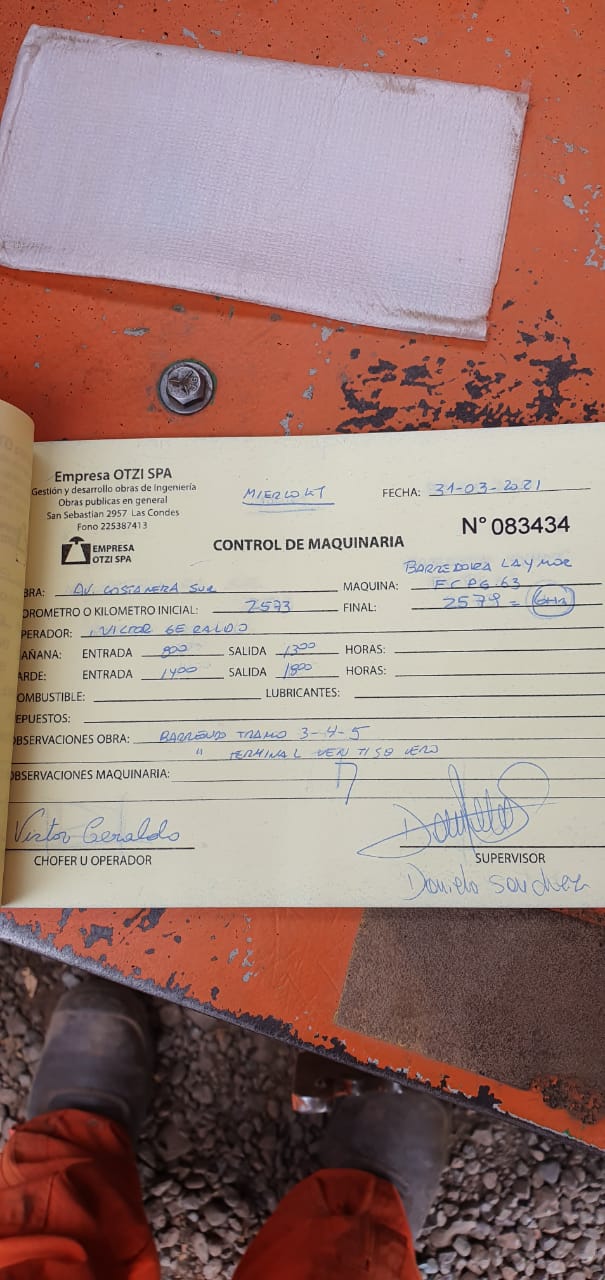 Empresa OTZI SPA
Gestión y desarrollo obras de Ingeniería
Obras publicas en general
San Sebastian 2957 Las Condes
Fono 225387413
EMPRESA
OTZI SPA
MIERCOLES
FECHA: 31-03-2021
N° 083434
CONTROL DE MAQUINARIA
BRA: AV. COSTANERA SUR
MAQUINA: BARREDORA LAYMOR
FCPG.63
OROMETRO O KILOMETRO INICIAL: 2573 FINAL: 2579 = 6Hrs
PERADOR: VICTOR GERALDO
AÑANA: ENTRADA 800 SALIDA 1300 HORAS:
ARDE: ENTRADA 1400 SALIDA 1800 HORAS:
OMBUSTIBLE: LUBRICANTES:
EPUESTOS:
OBSERVACIONES OBRA: BARRIENDO TRAMO 3-4-5
" TERMINAL VENTISQUERO
OBSERVACIONES MAQUINARIA:
Victor Geraldo
CHOFER U OPERADOR
SUPERVISOR
Daniela Sanchez